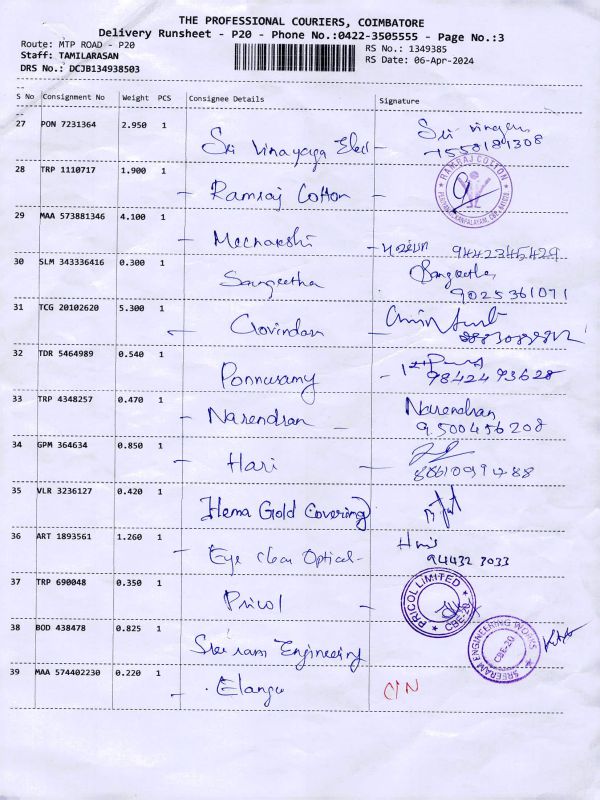 THE PROFESSIONAL COURIERS, COIMBATORE
Delivery Runsheet - P20 - Phone No.:0422-3505555 - Page No.:3
Route: MTP ROAD - P20
RS No.: 1349385
Staff: TAMILARASAN
RS Date: 06-Apr-2024
DRS No.: DCJB134938503
S No Consignment No Weight PCS Consignee Details Signature
27 PON 7231364 2.950 1 Sri Vinayaga Elec Sri
28 TRP 1110717 1.900 1 Ramraj Cotton RAMRAJ COTTON
29 MAA 573881346 4.100 1 Meenakshi 9442345429
30 SLM 343336416 0.300 1 Sangeetha Sangeetha
9025361071
31 TCG 20102620 5.300 1 Govindan
32 TDR 5464989 0.540 1 Ponnusamy
9842493628
33 TRP 4348257 0.470 1 Narendran Narendran
9500456208
34 GPM 364634 0.850 1 Hari
35 VLR 3236127 0.420 1 Hema Gold Covering
36 ART 1893561 1.260 1 Eye Clear Optical
94432 3033
37 TRP 690048 0.350 1 Pricol PRICOL LIMITED CBE-20
38 BOD 438478 0.825 1 Sree ram Engineering SREERAM ENGINEERING WORKS CBE-20
39 MAA 574402230 0.220 1 Elango C/N